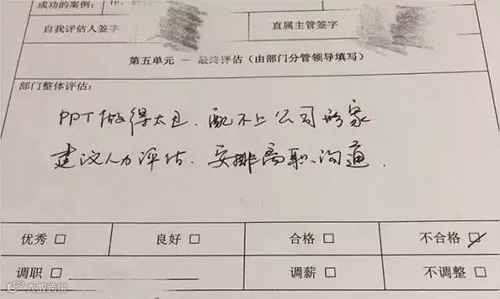 成功的案例：
自我评估人签字 直属主管签字
第五单元 — 最终评估（由部门分管领导填写）
部门整体评估：
PPT做得太丑，配不上公司形象
建议人力评估，安排离职沟通．
优秀 □ 良好 □ 合格 □ 不合格 ☑
调职 □ 调薪 □ 不调整 □